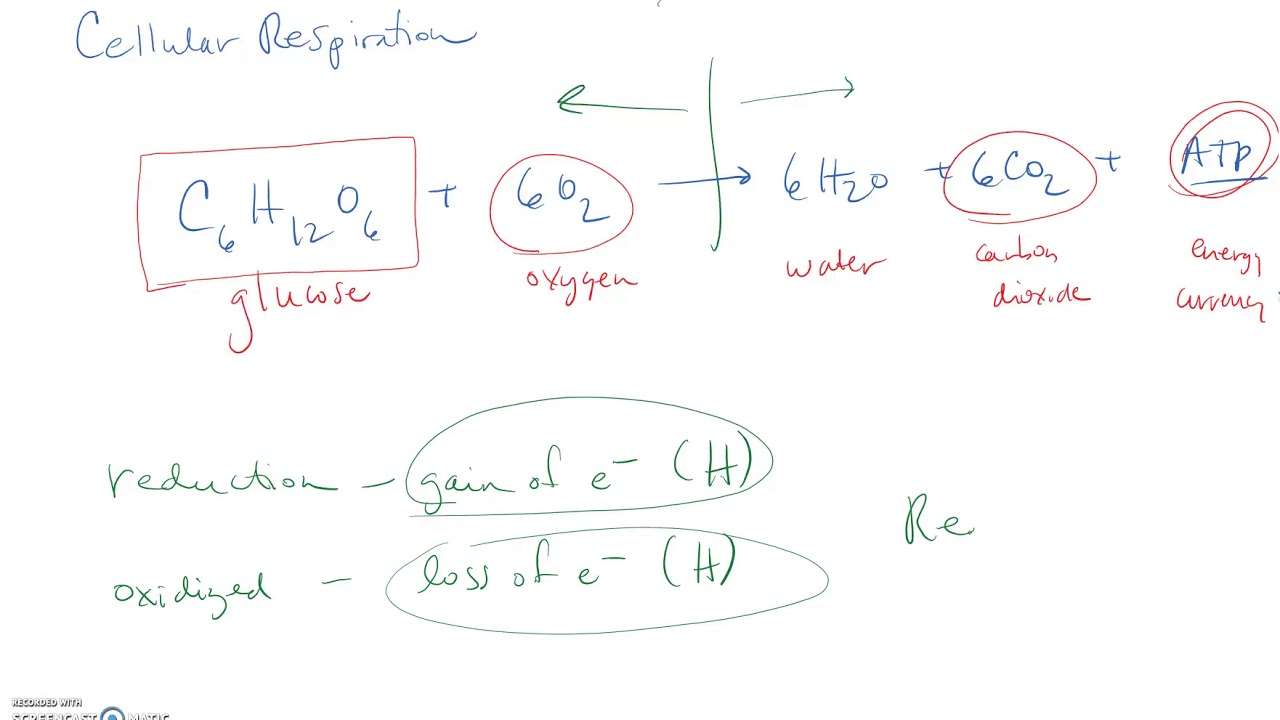 Cellular Respiration
C6H12O6 + 6O2 → 6H2O + 6CO2 + ATP
glucose oxygen water carbon dioxide energy currency
reduction - gain of e- (H)
Re
oxidized - loss of e- (H)
RECORDED WITH
SCREENCAST MATIC